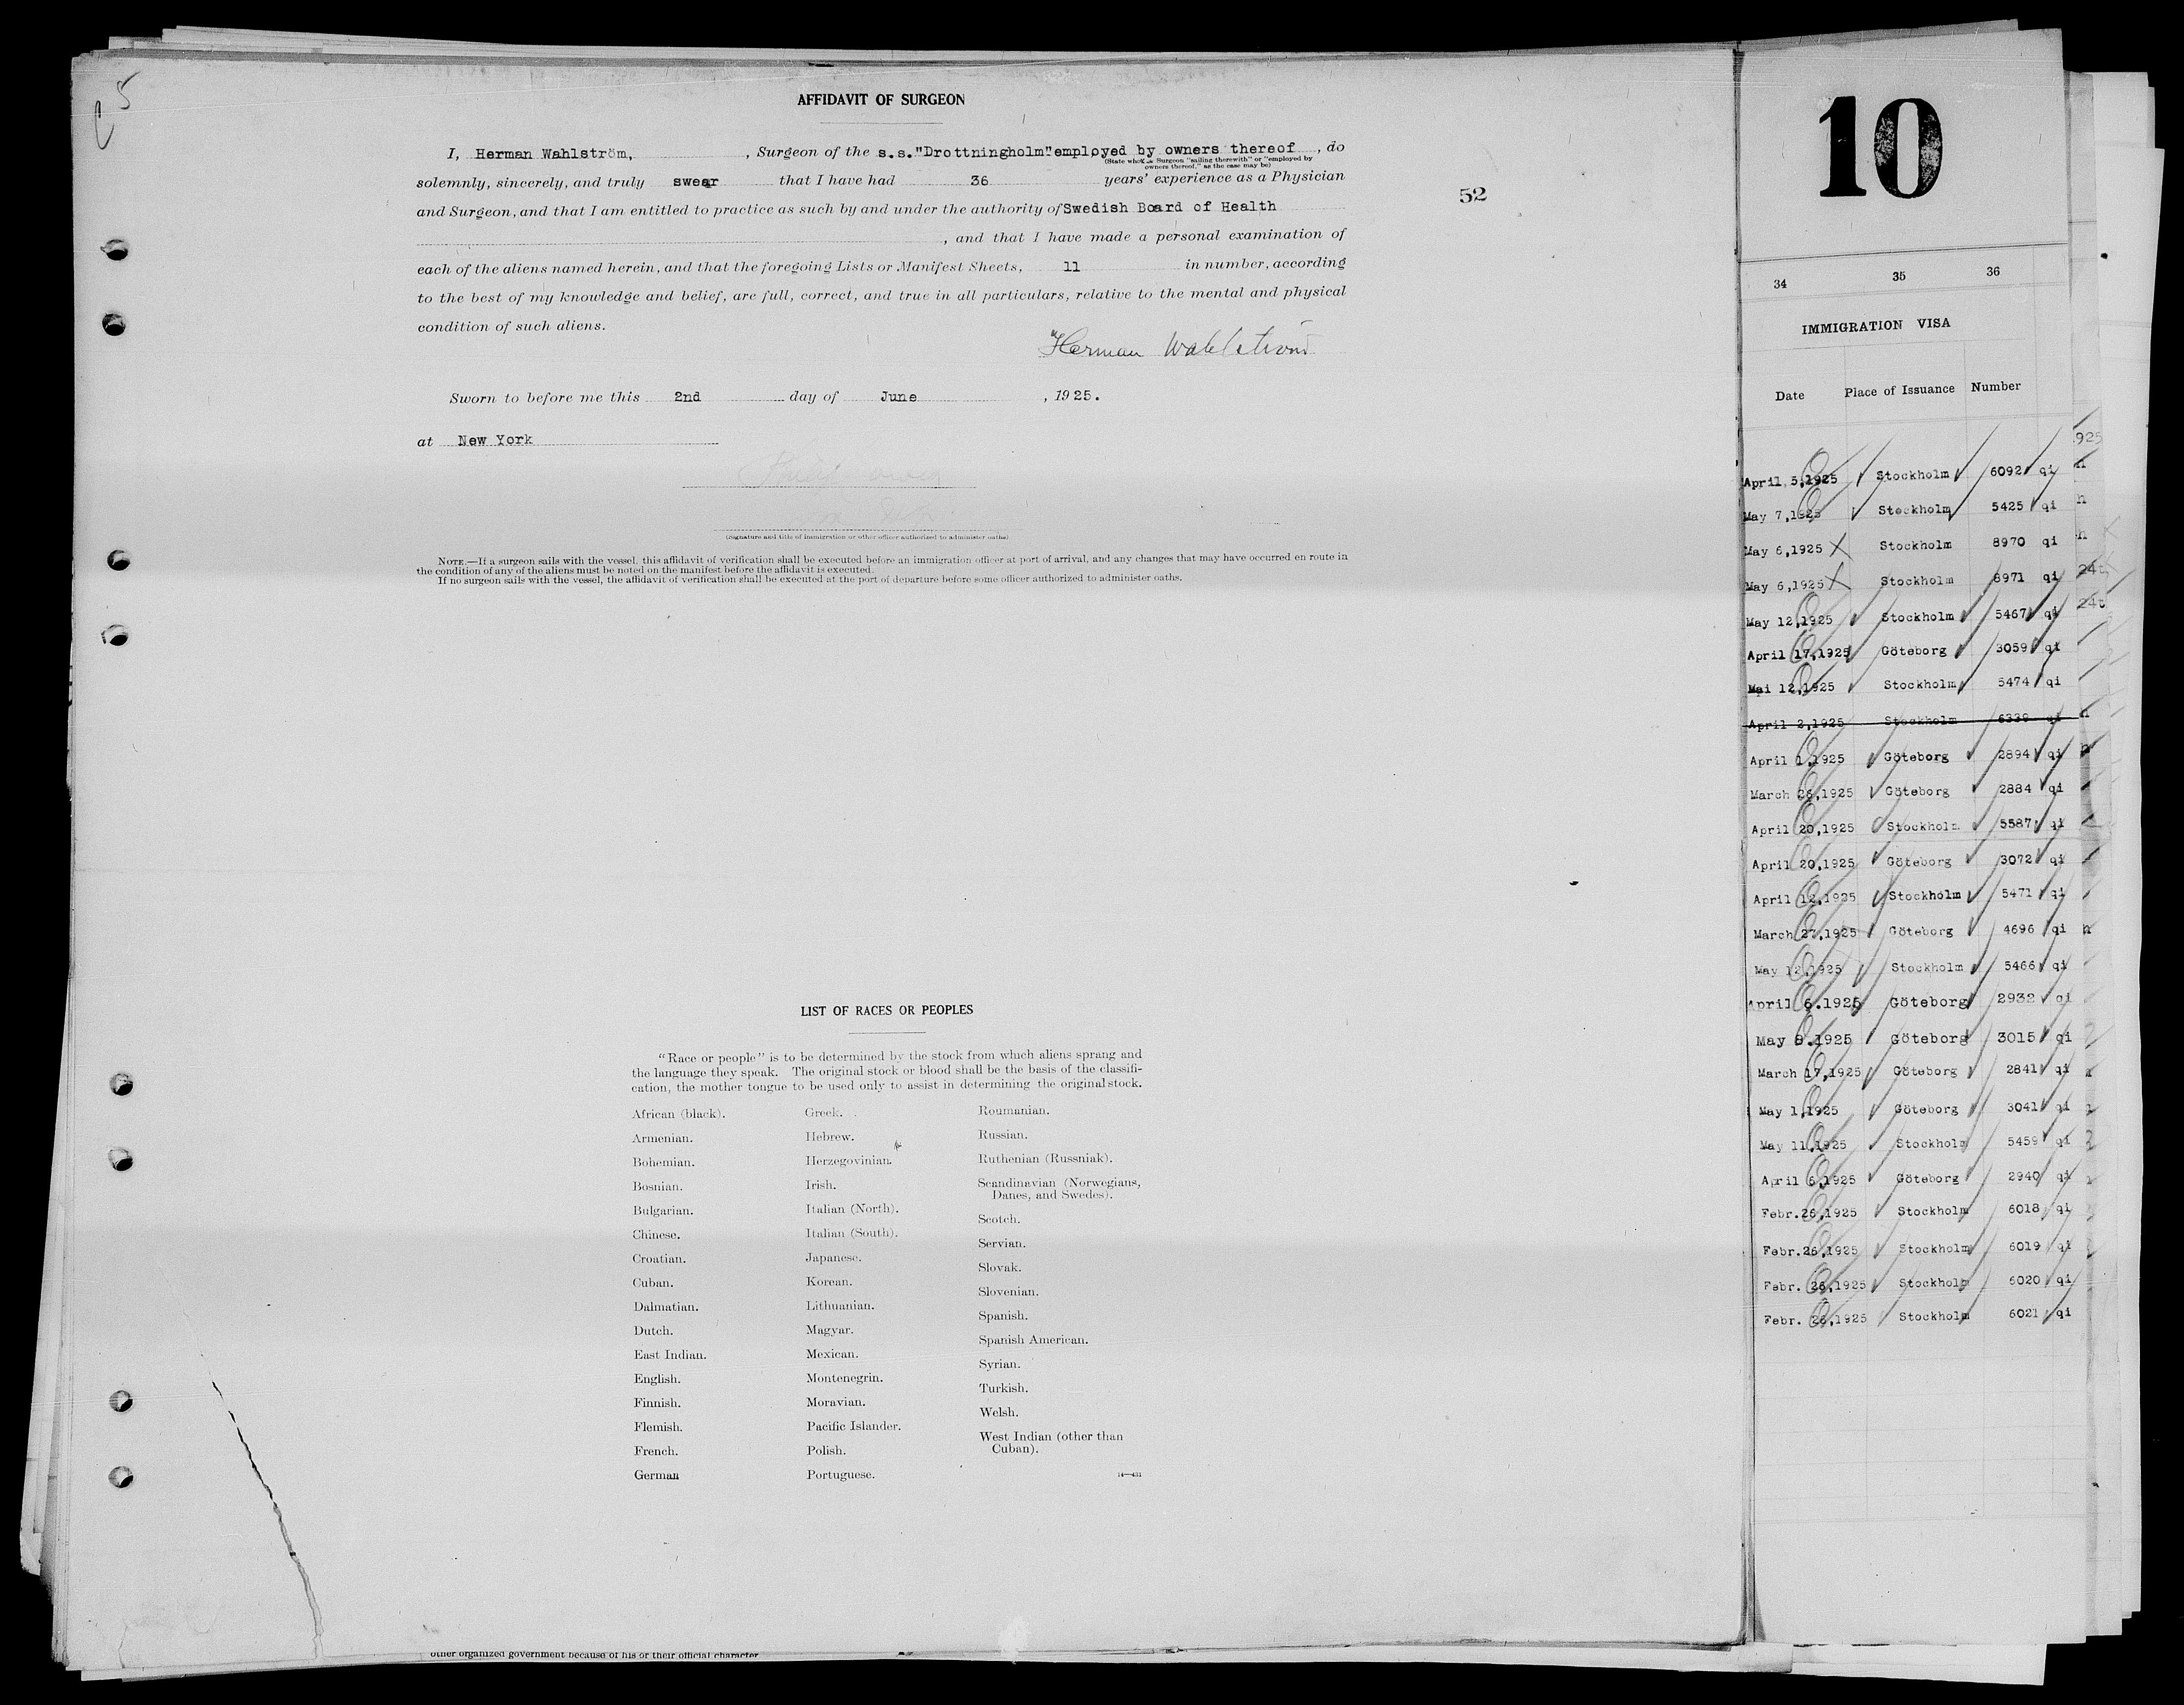 AFFIDAVIT OF SURGEON
I, Herman Wahlström, , Surgeon of the s.s."Drottningholm" employed by owners thereof , do
(State whether Surgeon "sailing therewith" or "employed by
owners thereof," as the case may be)
solemnly, sincerely, and truly swear that I have had 36 years' experience as a Physician
and Surgeon, and that I am entitled to practice as such by and under the authority of Swedish Board of Health
, and that I have made a personal examination of
each of the aliens named herein, and that the foregoing Lists or Manifest Sheets, 11 in number, according
to the best of my knowledge and belief, are full, correct, and true in all particulars, relative to the mental and physical
condition of such aliens.
Herman Wahlström
Sworn to before me this 2nd day of June , 1925.
at New York
(Signature and title of immigration or other officer authorized to administer oaths)
NOTE.—If a surgeon sails with the vessel, this affidavit of verification shall be executed before an immigration officer at port of arrival, and any changes that may have occurred en route in
the condition of any of the aliens must be noted on the manifest before the affidavit is executed.
If no surgeon sails with the vessel, the affidavit of verification shall be executed at the port of departure before some officer authorized to administer oaths.
52
LIST OF RACES OR PEOPLES
"Race or people" is to be determined by the stock from which aliens sprang and
the language they speak. The original stock or blood shall be the basis of the classifi-
cation, the mother tongue to be used only to assist in determining the original stock.
African (black).
Armenian.
Bohemian.
Bosnian.
Bulgarian.
Chinese.
Croatian.
Cuban.
Dalmatian.
Dutch.
East Indian.
English.
Finnish.
Flemish.
French.
German
Greek.
Hebrew.
Herzegovinian.
Irish.
Italian (North).
Italian (South).
Japanese.
Korean.
Lithuanian.
Magyar.
Mexican.
Montenegrin.
Moravian.
Pacific Islander.
Polish.
Portuguese.
Roumanian.
Russian.
Ruthenian (Russniak).
Scandinavian (Norwegians,
Danes, and Swedes).
Scotch.
Servian.
Slovak.
Slovenian.
Spanish.
Spanish American.
Syrian.
Turkish.
Welsh.
West Indian (other than
Cuban).
other organized government because of his or their official character
10
34 35 36
IMMIGRATION VISA
Date Place of Issuance Number
April 5,1925 Stockholm 6092 qi
May 7,1925 Stockholm 5425 qi
May 6,1925 Stockholm 8970 qi
May 6,1925 Stockholm 8971 qi
May 12,1925 Stockholm 5467 qi
April 17,1925 Göteborg 3059 qi
Mai 12,1925 Stockholm 5474 qi
April 2,1925 Stockholm 6339 qi
April 1,1925 Göteborg 2894 qi
March 26,1925 Göteborg 2884 qi
April 20,1925 Stockholm 5587 qi
April 20,1925 Göteborg 3072 qi
April 12,1925 Stockholm 5471 qi
March 27,1925 Göteborg 4696 qi
May 12,1925 Stockholm 5466 qi
April 6.1925 Göteborg 2932 qi
May 8.1925 Göteborg 3015 qi
March 17,1925 Göteborg 2841 qi
May 1,1925 Göteborg 3041 qi
May 11,1925 Stockholm 5459 qi
April 6,1925 Göteborg 2940 qi
Febr.26,1925 Stockholm 6018 qi
Febr.26,1925 Stockholm 6019 qi
Febr. 26,1925 Stockholm 6020 qi
Febr. 26,1925 Stockholm 6021 qi